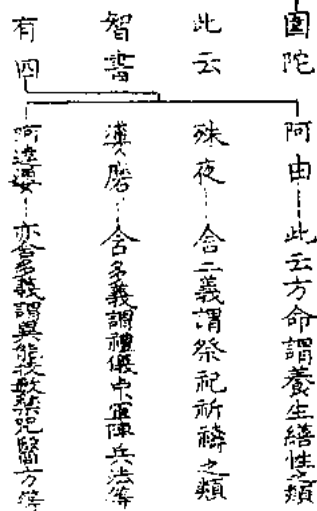 圍陀
此云
智書
有四
阿由
此云方命謂養生繕性之類
殊夜
含二義謂祭祀祈禱之類
磨
含多義謂禮儀中軍陣兵法等
阿達婆
亦含多義謂異能技數禁咒醫方等